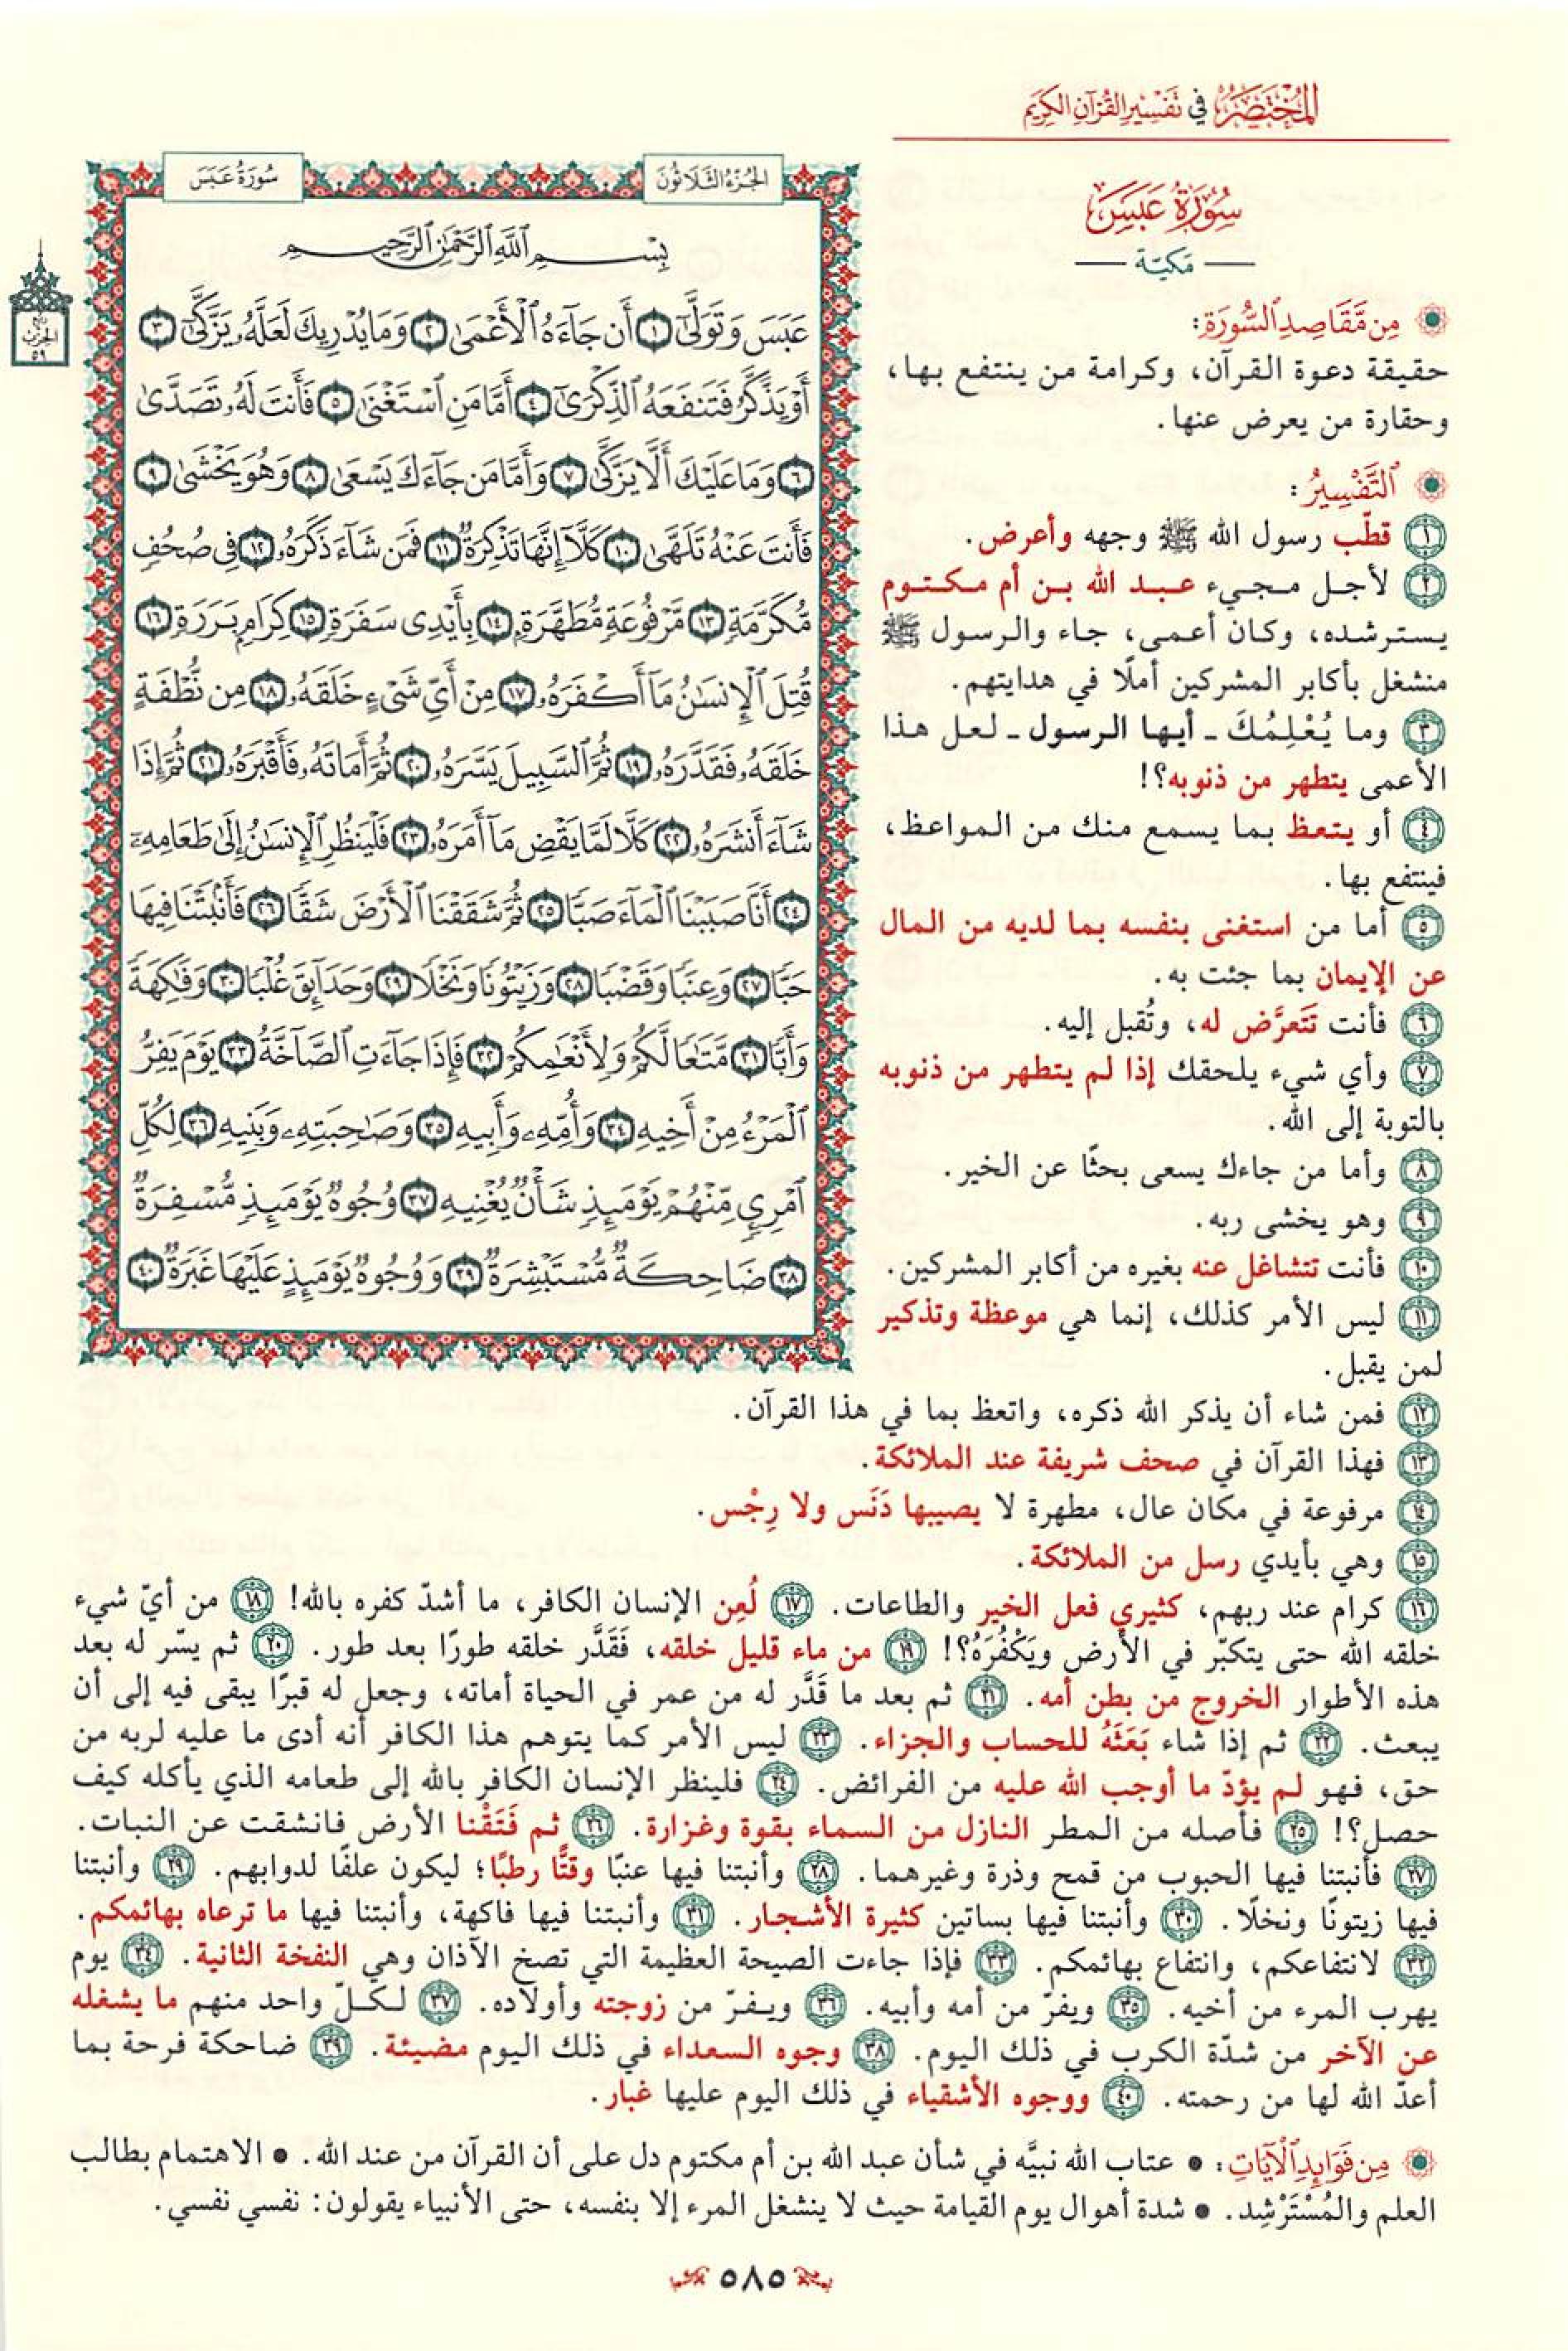 المُخْتَصَرُ في تَفْسِيرِ القُرْآنِ الكَرِيمِ
سُورَةُ عَبَسَ
مَكيّة
مِن مَّقَاصِدِ ٱلسُّورَةِ:
حقيقة دعوة القرآن، وكرامة من ينتفع بها،
وحقارة من يعرض عنها.
ٱلتَّفْسِيرُ:
١ قطّب رسول الله ﷺ وجهه وأعرض.
٢ لأجل مجيء عبد الله بن أم مكتوم
يسترشده، وكان أعمى، جاء والرسول ﷺ
منشغل بأكابر المشركين أملًا في هدايتهم.
٣ وما يُعْلِمُكَ ـ أيها الرسول ـ لعل هذا
الأعمى يتطهر من ذنوبه؟!
٤ أو يتعظ بما يسمع منك من المواعظ،
فينتفع بها.
٥ أما من استغنى بنفسه بما لديه من المال
عن الإيمان بما جئت به.
٦ فأنت تَتَعرَّض له، وتُقبل إليه.
٧ وأي شيء يلحقك إذا لم يتطهر من ذنوبه
بالتوبة إلى الله.
٨ وأما من جاءك يسعى بحثًا عن الخير.
٩ وهو يخشى ربه.
١٠ فأنت تتشاغل عنه بغيره من أكابر المشركين.
١١ ليس الأمر كذلك، إنما هي موعظة وتذكير
لمن يقبل.
الجُزْءُ الثَّلَاثُونَ
سُورَةُ عَبَسَ
بِسْمِ ٱللَّهِ ٱلرَّحْمَٰنِ ٱلرَّحِيمِ
عَبَسَ وَتَوَلَّىٰٓ ١ أَن جَآءَهُ ٱلْأَعْمَىٰ ٢ وَمَا يُدْرِيكَ لَعَلَّهُۥ يَزَّكَّىٰٓ ٣
أَوْ يَذَّكَّرُ فَتَنفَعَهُ ٱلذِّكْرَىٰٓ ٤ أَمَّا مَنِ ٱسْتَغْنَىٰ ٥ فَأَنتَ لَهُۥ تَصَدَّىٰ
٦ وَمَا عَلَيْكَ أَلَّا يَزَّكَّىٰ ٧ وَأَمَّا مَن جَآءَكَ يَسْعَىٰ ٨ وَهُوَ يَخْشَىٰ ٩
فَأَنتَ عَنْهُ تَلَهَّىٰ ١٠ كَلَّآ إِنَّهَا تَذْكِرَةٌ ١١ فَمَن شَآءَ ذَكَرَهُۥ ١٢ فِى صُحُفٍ
مُّكَرَّمَةٍ ١٣ مَّرْفُوعَةٍ مُّطَهَّرَةٍۭ ١٤ بِأَيْدِى سَفَرَةٍ ١٥ كِرَامٍۭ بَرَرَةٍ ١٦
قُتِلَ ٱلْإِنسَٰنُ مَآ أَكْفَرَهُۥ ١٧ مِنْ أَىِّ شَىْءٍ خَلَقَهُۥ ١٨ مِن نُّطْفَةٍ
خَلَقَهُۥ فَقَدَّرَهُۥ ١٩ ثُمَّ ٱلسَّبِيلَ يَسَّرَهُۥ ٢٠ ثُمَّ أَمَاتَهُۥ فَأَقْبَرَهُۥ ٢١ ثُمَّ إِذَا
شَآءَ أَنشَرَهُۥ ٢٢ كَلَّا لَمَّا يَقْضِ مَآ أَمَرَهُۥ ٢٣ فَلْيَنظُرِ ٱلْإِنسَٰنُ إِلَىٰ طَعَامِهِۦٓ
٢٤ أَنَّا صَبَبْنَا ٱلْمَآءَ صَبًّا ٢٥ ثُمَّ شَقَقْنَا ٱلْأَرْضَ شَقًّا ٢٦ فَأَنۢبَتْنَا فِيهَا
حَبًّا ٢٧ وَعِنَبًا وَقَضْبًا ٢٨ وَزَيْتُونًا وَنَخْلًا ٢٩ وَحَدَآئِقَ غُلْبًا ٣٠ وَفَٰكِهَةً
وَأَبًّا ٣١ مَّتَٰعًا لَّكُمْ وَلِأَنْعَٰمِكُمْ ٣٢ فَإِذَا جَآءَتِ ٱلصَّآخَّةُ ٣٣ يَوْمَ يَفِرُّ
ٱلْمَرْءُ مِنْ أَخِيهِ ٣٤ وَأُمِّهِۦ وَأَبِيهِ ٣٥ وَصَٰحِبَتِهِۦ وَبَنِيهِ ٣٦ لِكُلِّ
ٱمْرِئٍ مِّنْهُمْ يَوْمَئِذٍ شَأْنٌ يُغْنِيهِ ٣٧ وُجُوهٌ يَوْمَئِذٍ مُّسْفِرَةٌ
٣٨ ضَاحِكَةٌ مُّسْتَبْشِرَةٌ ٣٩ وَوُجُوهٌ يَوْمَئِذٍ عَلَيْهَا غَبَرَةٌ ٤٠
ربع
الحزب
٥٩
١٢ فمن شاء أن يذكر الله ذكره، واتعظ بما في هذا القرآن.
١٣ فهذا القرآن في صحف شريفة عند الملائكة.
١٤ مرفوعة في مكان عال، مطهرة لا يصيبها دَنَس ولا رِجْس.
١٥ وهي بأيدي رسل من الملائكة.
١٦ كرام عند ربهم، كثيري فعل الخير والطاعات. ١٧ لُعِن الإنسان الكافر، ما أشدّ كفره بالله! ١٨ من أيّ شيء
خلقه الله حتى يتكبّر في الأرض ويَكْفُرَهُ؟! ١٩ من ماء قليل خلقه، فَقَدَّر خلقه طورًا بعد طور. ٢٠ ثم يسّر له بعد
هذه الأطوار الخروج من بطن أمه. ٢١ ثم بعد ما قَدَّر له من عمر في الحياة أماته، وجعل له قبرًا يبقى فيه إلى أن
يبعث. ٢٢ ثم إذا شاء بَعَثَهُ للحساب والجزاء. ٢٣ ليس الأمر كما يتوهم هذا الكافر أنه أدى ما عليه لربه من
حق، فهو لم يؤدّ ما أوجب الله عليه من الفرائض. ٢٤ فلينظر الإنسان الكافر بالله إلى طعامه الذي يأكله كيف
حصل؟! ٢٥ فأصله من المطر النازل من السماء بقوة وغزارة. ٢٦ ثم فَتَقْنا الأرض فانشقت عن النبات.
٢٧ فأنبتنا فيها الحبوب من قمح وذرة وغيرهما. ٢٨ وأنبتنا فيها عنبًا وقتًّا رطبًا؛ ليكون علفًا لدوابهم. ٢٩ وأنبتنا
فيها زيتونًا ونخلًا. ٣٠ وأنبتنا فيها بساتين كثيرة الأشجار. ٣١ وأنبتنا فيها فاكهة، وأنبتنا فيها ما ترعاه بهائمكم.
٣٢ لانتفاعكم، وانتفاع بهائمكم. ٣٣ فإذا جاءت الصيحة العظيمة التي تصخ الآذان وهي النفخة الثانية. ٣٤ يوم
يهرب المرء من أخيه. ٣٥ ويفرّ من أمه وأبيه. ٣٦ ويفرّ من زوجته وأولاده. ٣٧ لكلّ واحد منهم ما يشغله
عن الآخر من شدّة الكرب في ذلك اليوم. ٣٨ وجوه السعداء في ذلك اليوم مضيئة. ٣٩ ضاحكة فرحة بما
أعدّ الله لها من رحمته. ٤٠ ووجوه الأشقياء في ذلك اليوم عليها غبار.
مِن فَوَائِدِ ٱلْآيَاتِ: • عتاب الله نبيَّه في شأن عبد الله بن أم مكتوم دل على أن القرآن من عند الله. • الاهتمام بطالب
العلم والمُسْتَرْشِد. • شدة أهوال يوم القيامة حيث لا ينشغل المرء إلا بنفسه، حتى الأنبياء يقولون: نفسي نفسي.
٥٨٥